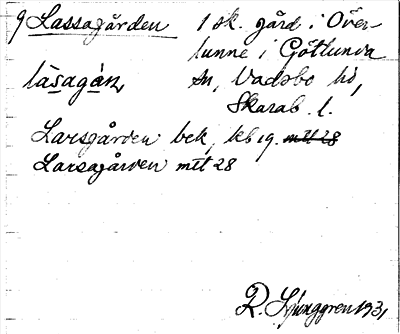 9 Lassagården 1 sk. gård i Över-
lunne i Götlunda
lasagán, sn, Vadsbo hd,
Skarab. l.
Larsgården bek, kb 19. mtl 28
Larsagården mtl 28
R. Ljunggren 1931